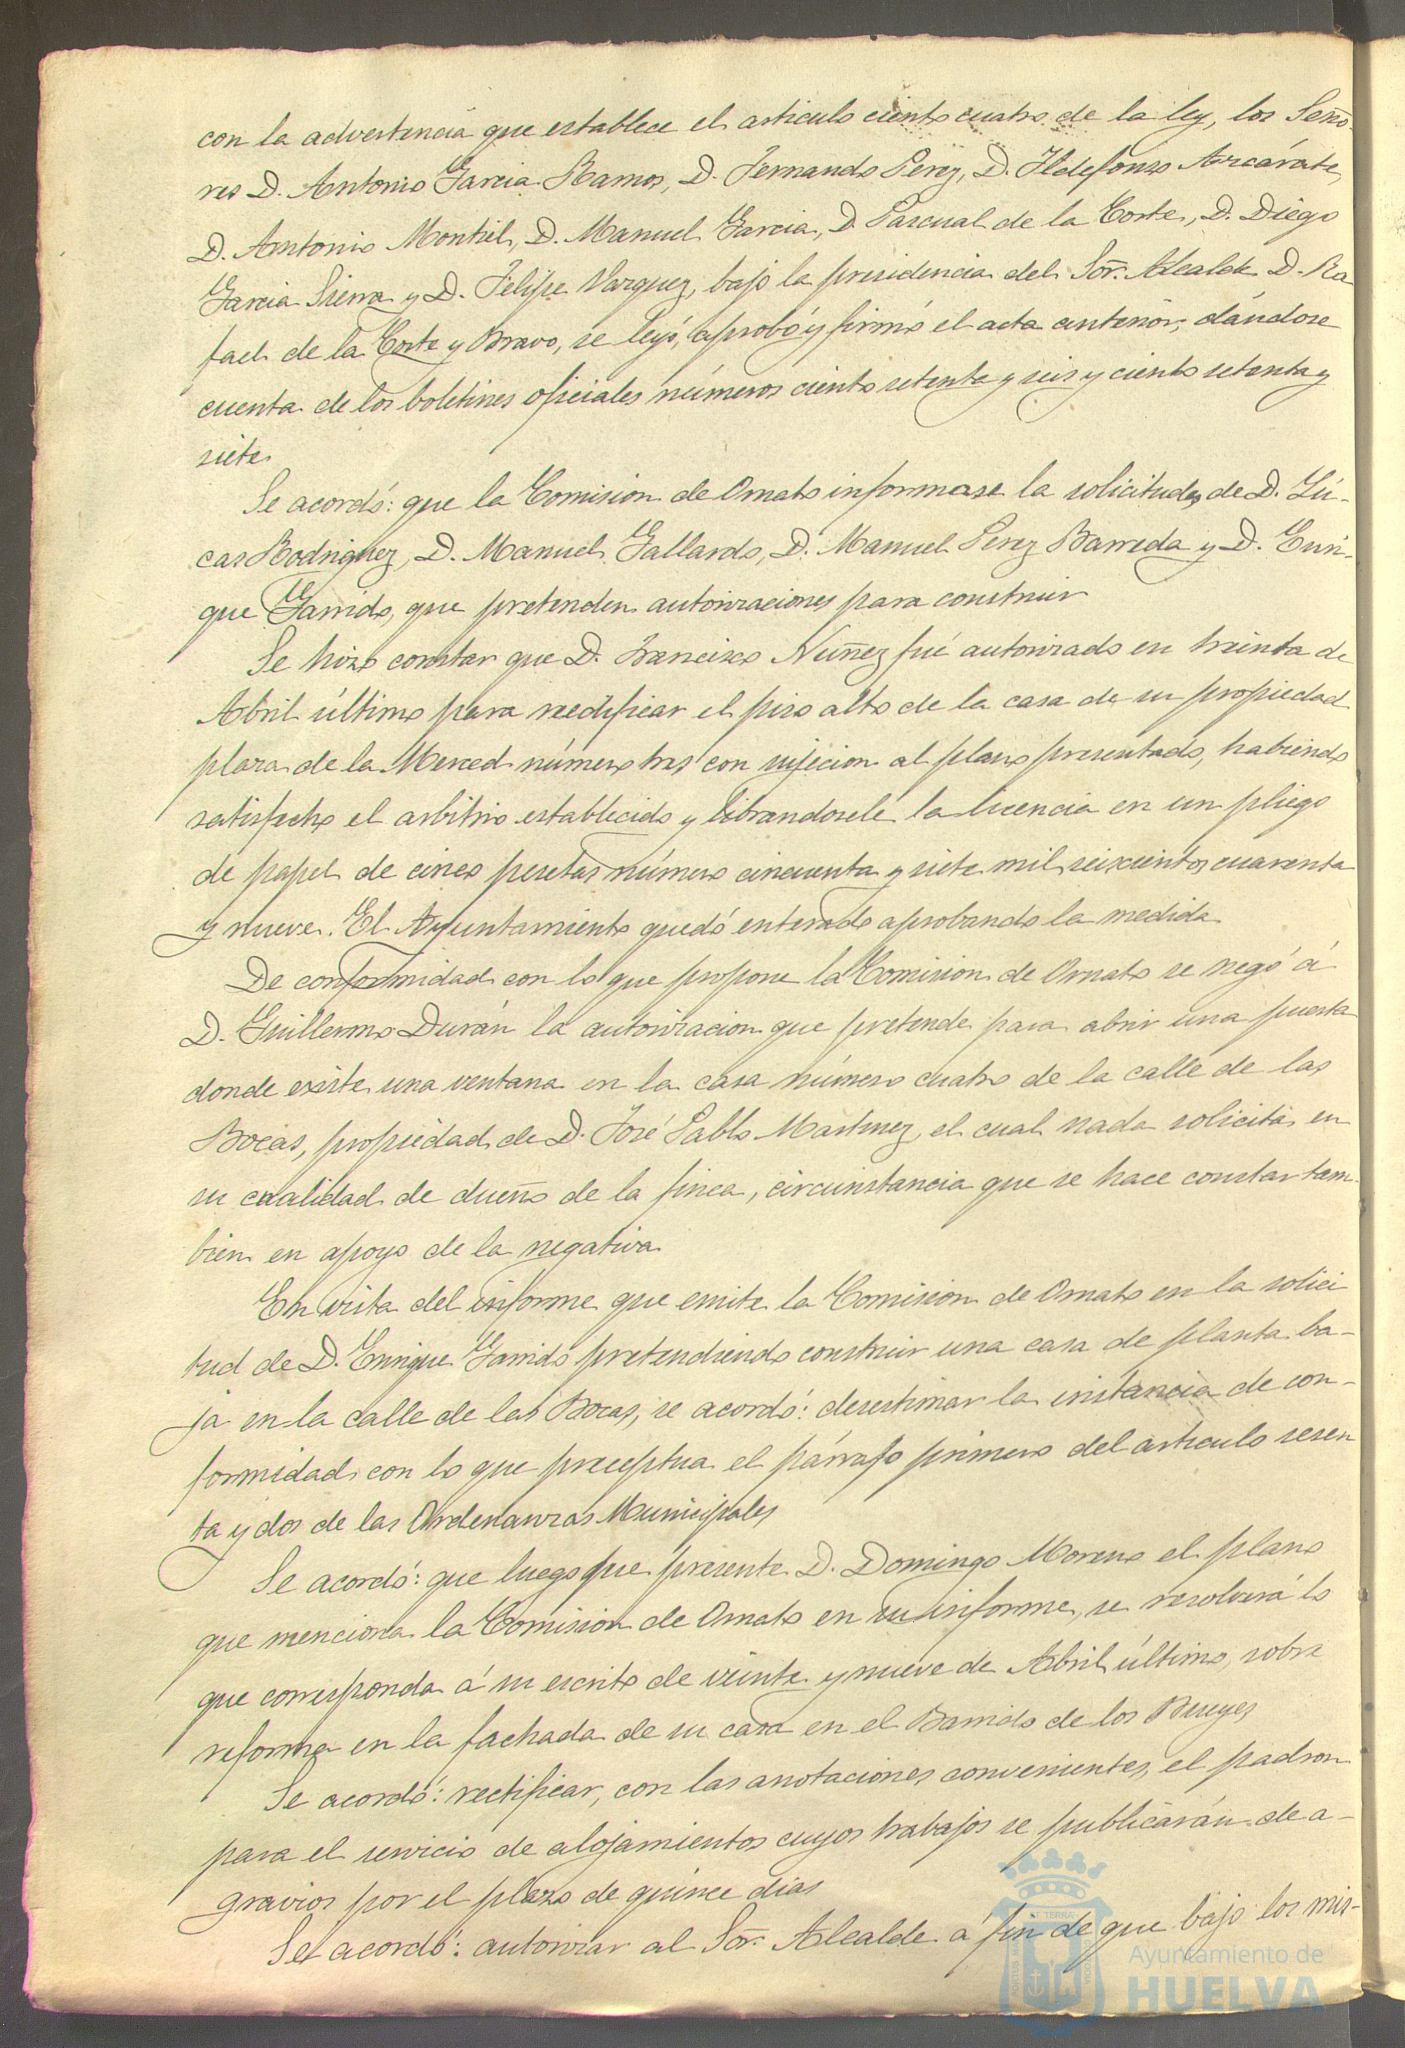 con la advertencia que establece el articulo ciento cuatro de la ley, los Seño-
res D. Antonio Garcia Ramos, D. Fernando Perez, D. Ildefonso Azcárate,
D. Amtonio Montiel, D. Manuel Garcia, D. Pascual de la Corte, D. Diego
Garcia Sierra y D. Felipe Vazquez, bajo la presidencia del Sor. Alcalde D. Ra
fael de la Corte y Bravo, se leyó, aprobó y firmó el acta anterior, dándose
cuenta de los boletines oficiales números ciento setenta y seis y ciento setenta y
siete.
Se acordó: que la Comision de Ornato informase la solicitudes de D. Lú-
cas Rodriguez, D. Manuel Gallardo, D. Manuel Perez Barreda y D. Enri-
que Garrido, que pretenden autorizaciones para construir
Se hizo constar que D. Francisco Nuñez fué autorizado en treinta de
Abril último para reedificar el piso alto de la casa de su propiedad
plaza de la Merced número tres con sujecion al plano presentado, habiendo
satisfecho el arbitrio establecido y librandosele la licencia en un pliego
de papel de cinco pesetas número cincuenta y siete mil seiscientos cuarenta
y nueve. El Ayuntamiento quedó enterado aprobando la medida
De conformidad con lo que propone la Comision de Ornato se negó á
D. Guillermo Durán la autorizacion que pretende para abrir una puerta
donde existe una ventana en la casa número cuatro de la calle de las
Bocas, propiedad de D. José Pablo Martinez, el cual nada solicita en
su cualidad de dueño de la finca, circunstancia que se hace constar tam-
bien en apoyo de la negativa
En vista del informe que emite la Comision de Ornato en la solici
tud de D. Enrique Garrido pretendiendo construir una casa de planta ba-
ja en la calle de las Bocas, se acordó: desestimar la instancia de con-
formidad con lo que preceptua el párrafo primero del articulo sesen
ta y dos de las Ordenanzas Municipales
Se acordó: que luego que presente D. Domingo Moreno el plano
que menciona la Comision de Ornato en su informe, se resolverá lo
que corresponda á su escrito de veinte y nueve de Abril último, sobre
reforma en la fachada de su casa en el Barrido de los Bueyes
Se acordó: rectificar, con las anotaciones convenientes, el padron
para el servicio de alojamientos cuyos trabajos se publicarán de a-
gravios por el plazo de quince dias
Se acordó: autorizar al Sor. Alcalde á fin de que bajo los mis-
Ayuntamiento de
HUELVA